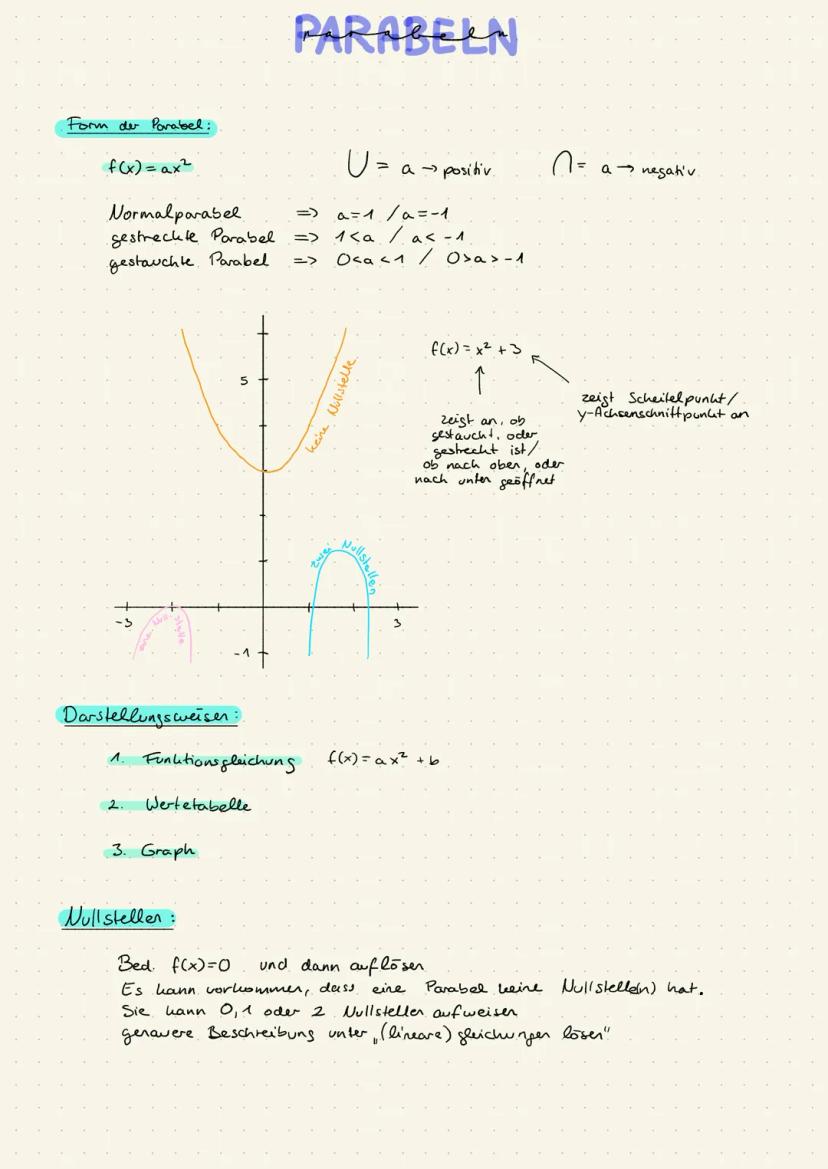 PARABELN
parabeln
Form der Parabel:
f(x) = ax²
U = a → positiv
∩ = a → negativ
Normalparabel => a=1 / a=-1
gestreckte Parabel => 1<a / a< -1
gestauchte Parabel => 0<a<1 / 0>a>-1
5
keine Nullstelle
f(x) = x² + 3
zeigt Scheitelpunkt/
y-Achsenschnittpunkt an
zeigt an, ob
gestaucht, oder
gestreckt ist/
ob nach oben, oder
nach unten geöffnet
zwei Nullstellen
-3
3
eine Nullstelle
-1
Darstellungsweisen:
1. Funktionsgleichung f(x) = ax² + b
2. Wertetabelle
3. Graph
Nullstellen:
Bed. f(x)=0 und dann auflösen
Es kann vorkommen, dass eine Parabel keine Nullstelle(n) hat.
Sie kann 0,1 oder 2 Nullstellen aufweisen
genauere Beschreibung unter „(lineare) gleichungen lösen"